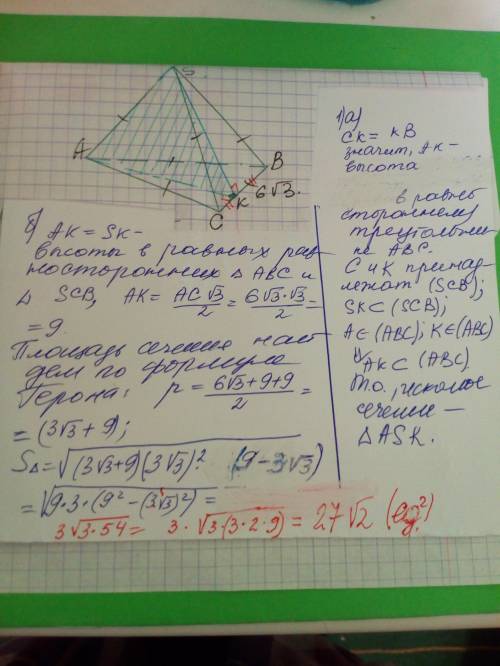 S
A
B
C
K
6√3.
1)а)
СК = КВ
значит, АК-
высота
в равно
стороннем
треугольни
ке АВС.
С и К принад-
лежат (SCB);
SK⊂(SCB);
А∈(АВС); К∈(АВС)
АК⊂(АВС)
Т.о., искомое
сечение —
ΔASK.
б) АК = SK -
высоты в равных рав
носторонних Δ АВС и
Δ SCB, АК = АС√3/2 = 6√3·√3/2 =
= 9.
Площадь сечения най
дем по формуле
Герона: p = 6√3+9+9/2 =
= (3√3 + 9);
SΔ = √(3√3+9)(3√3)² · (9-3√3)
= √9·3·(9²-(3√3)²) =
3√3·54 = 3·√3·(3·2·9) = 27√2 (ед²)